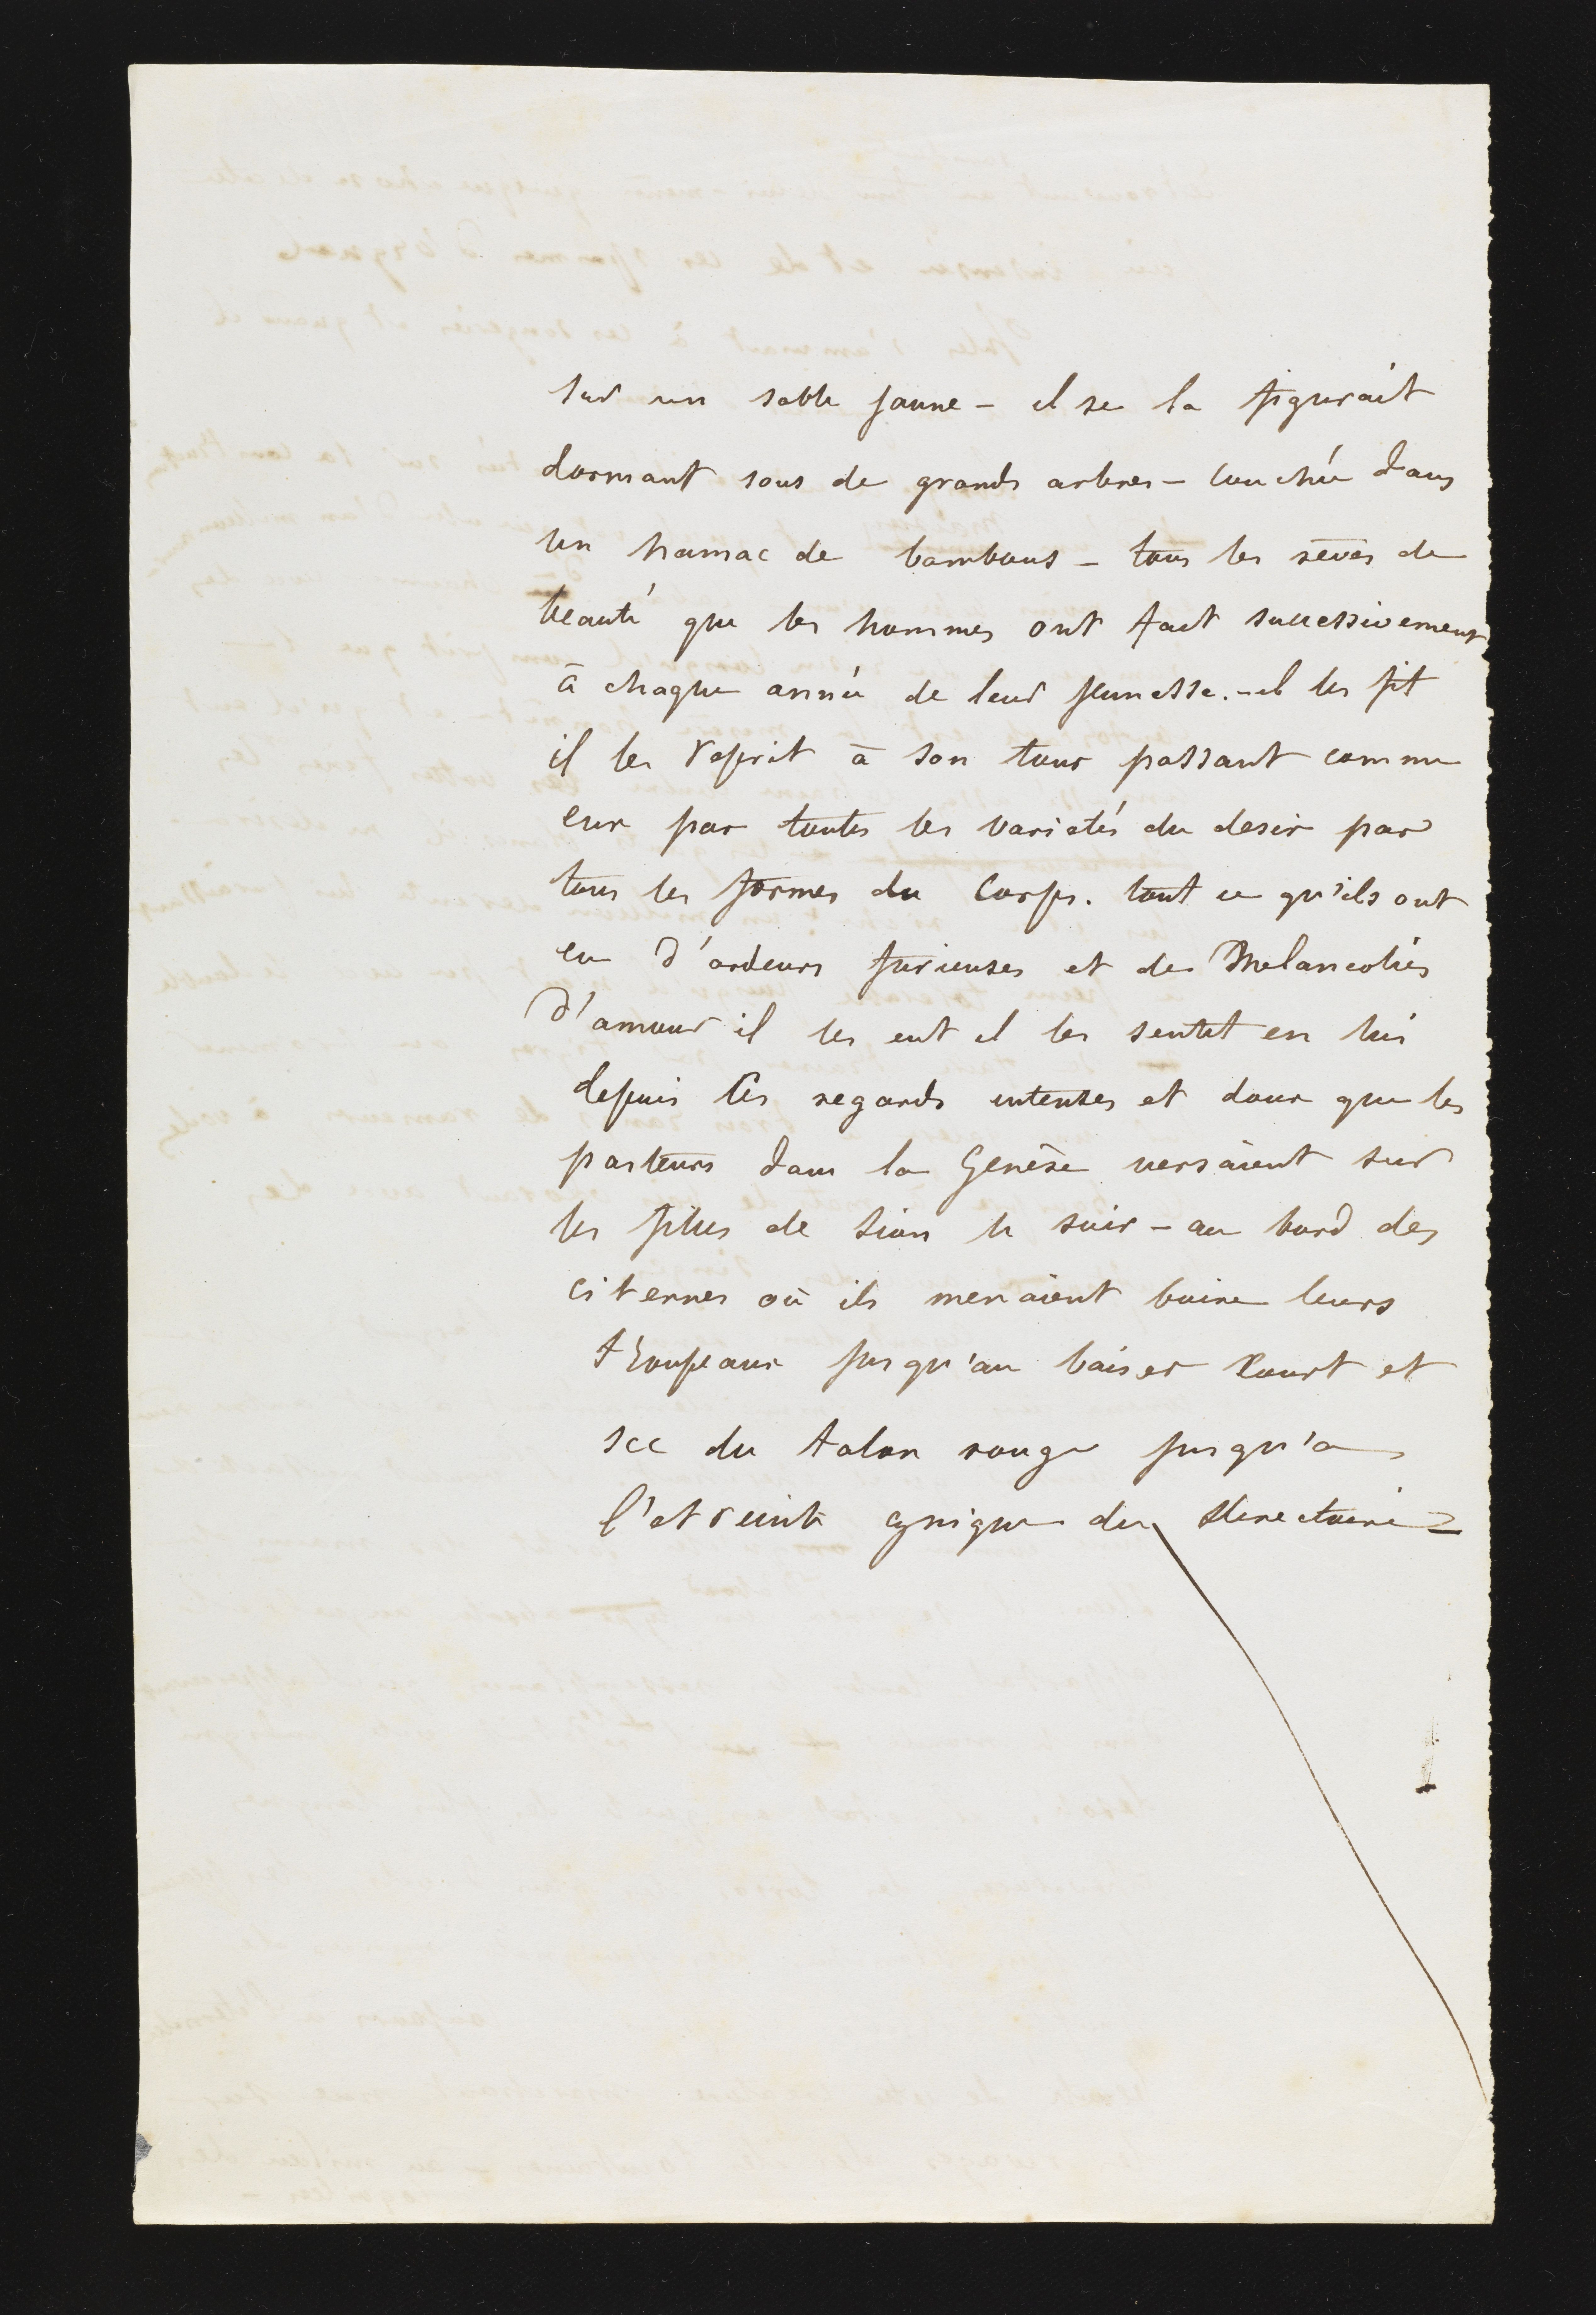 sur un sable jaune – il se la figurait
dormant sous de grands arbres – couchée dans
un hamac de bambous – tous les rêves de
beauté que les hommes ont fait successivement
à chaque année de leur jeunesse. – il les fit
il les reprit à son tour passant comme
eux par toutes les variétés du desir par
tous les formes du corps. tout ce qu'ils ont
eu d'ardeurs furieuses et de Melancolies
d'amour il les eut il les sentit en lui
depuis les regards intenses et doux que les
pasteurs dans la Genèse versaient sur
les filles de Sion le soir – au bord des
citernes où ils menaient boire leurs
troupeaux jusqu'au baiser court et
sec du talon rouge jusqu'a
l'etreinte cynique du Directoire